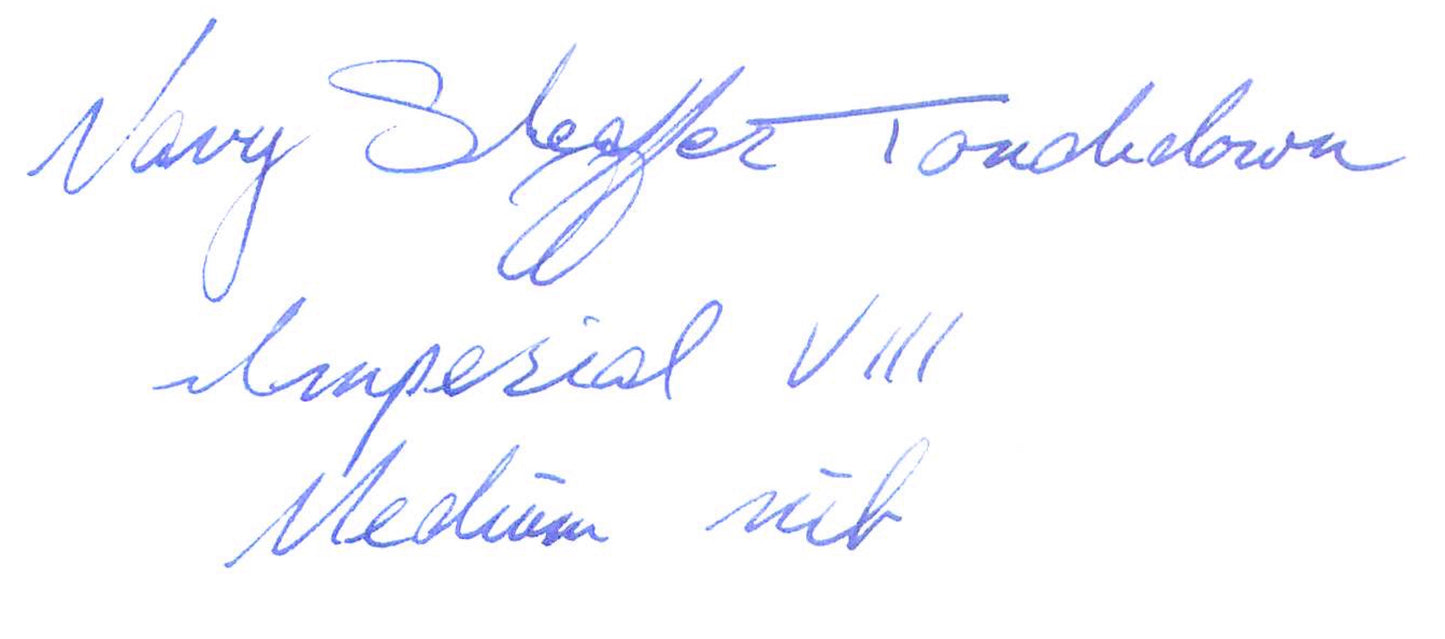 Navy Sheaffer Touchdown
Imperial VIII
Medium nib